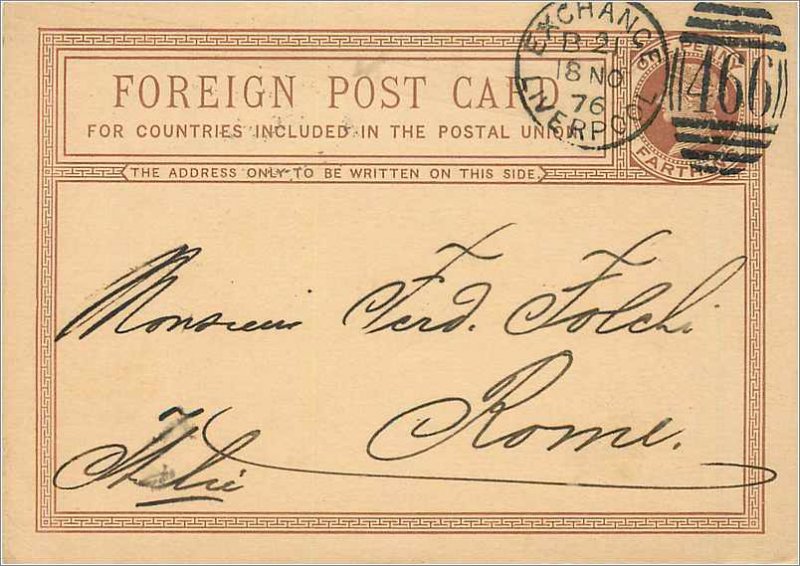 EXCHANGE
B 2
18 NO
76
LIVERPOOL
466
PENNY
FARTHING
FOREIGN POST CARD
FOR COUNTRIES INCLUDED IN THE POSTAL UNION
THE ADDRESS ONLY TO BE WRITTEN ON THIS SIDE.
Monsieur Ferd. Folchi
Rome.
Italie